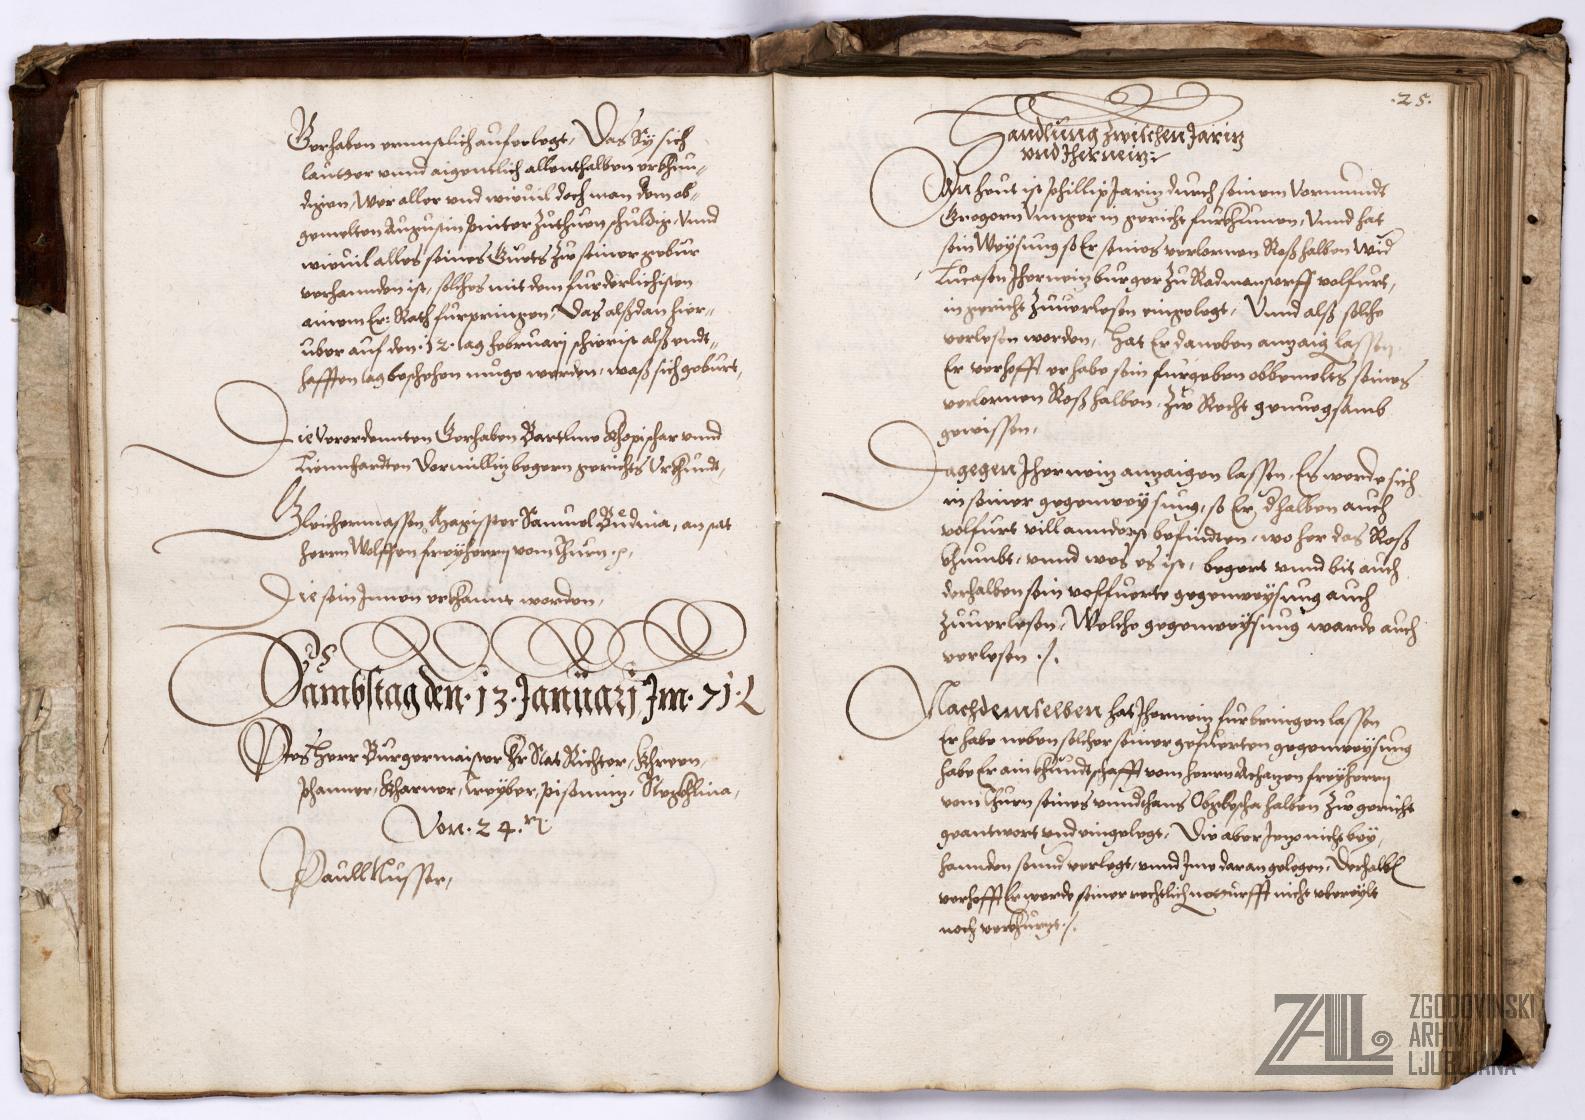 Gerhaben ernnstlich auferlegt, Das Sy sich
lautter unnd aigentlich allenthalben erkhun=
digen, Wer aller und wievil doch man dem ob=
gemelten Augustin Pinter zuthuen schuldig, Unnd
wievil alles seines Guets zu seiner gebur
verhannden ist, solches mit dem furderlichisten
ainem Er: Rath furpringen, Das alßdan hier=
uber auf den .12. tag Februarj schierist alß endt=
hafften tag beschehen muge werden, waß sich geburt,
Die Verordennten Gerhaben Bartlme Khopischar unnd
Liennhardten begern gerichts Urkhundt,
Gleichermassen Magister Samuel Budina, an stat
herrn Wolffen freyherrn vom Thurn .p.
Die sein Innen erkhannt worden,
Sambstag den .13. Januarj Im .71.
Herr Burgermaister Hr Stat Richter, Khreen,
Phanner, Kharner, Treyber, Stegkhlina,
Von .24.
Paull Nusser,
.25.
Handlung zwischen Jariz
und Therneiz:
An heut ist Phillip Jariz durch seinem Vormundt
Gregorn Unnger in gericht furkhumen, Unnd hat
sein Weysung so Er seines verlornen Roß halben wid
Lucasen Therneiz burger zu Radmanstorff volfurt,
in gericht zuverlesen eingelegt, Unnd alß solche
verlesen worden, hat Er daneben anzaig lassen,
Er verhofft er habe sein furgeben obbemelts seines
verlornen Roß halben, zu Recht genuegsamb
gewissen,
Dagegen Therneiz anzaigen lassen, Es werde sich
in seiner gegenweysung, so Er dhalben auch
volfurt vill annderst befindten, wo her das Roß
khumbt, unnd wes es ist, begert unnd bit auch
derhalben sein volfuerte gegenweysung auch
zuverlesen, Welche gegenweysung warde auch
verlesen ./.
Nachdemselben hat Therneiz furbringen lassen
Er habe neben solcher seiner gefuerten gegenweysung
habe Er ain khundtschafft vom herrn Achazen freyherrn
vom Thurn seines unndthans halben zu gericht
geantwort und eingelegt, Die aber Jezo nicht bey=
hannden sonnd verlegt, unnd Ime daran gelegen, Derhalb
verhofft Er werde seiner rechtlich notturfft nicht ubereylt
noch verkhurzt ./.
ZAL
ZGODOVINSKI
ARHIV
LJUBLJANA